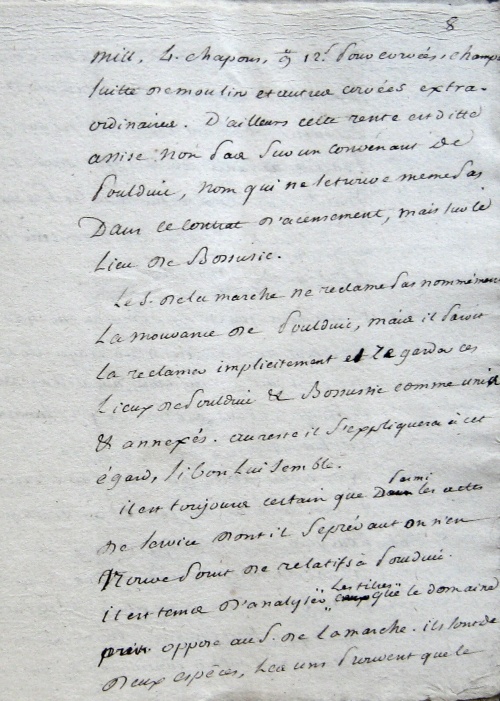 8
mill, 4. chapons, 12.d pour corvées, champ
suitte de moulin et autres corvées extra-
ordinaires. D'ailleurs cette rente est ditte
assise non pas sur un convenant de
Poulduic, nom qui ne se trouve meme pas
Dans ce contrat d'acensement, mais sur le
Lieu de Bossusic.
Le S. de la marche ne reclame pas nommément
La mouvance de Poulduic, mais il paroit
la reclamer implicitement et regarder ces
Lieux de Poulduic & Bossusic comme unis
& annexés. au reste il s'expliquera à cet
égard, si bon lui semble.
il est toujours certain que parmi les actes
de service dont il se prévaut on n'en
trouve point de relatifs à Poulduic.
il est tems d'analyser les titres que le domaine
oppose au S. de la marche. ils sont de
deux espèces, Les uns prouvent que le